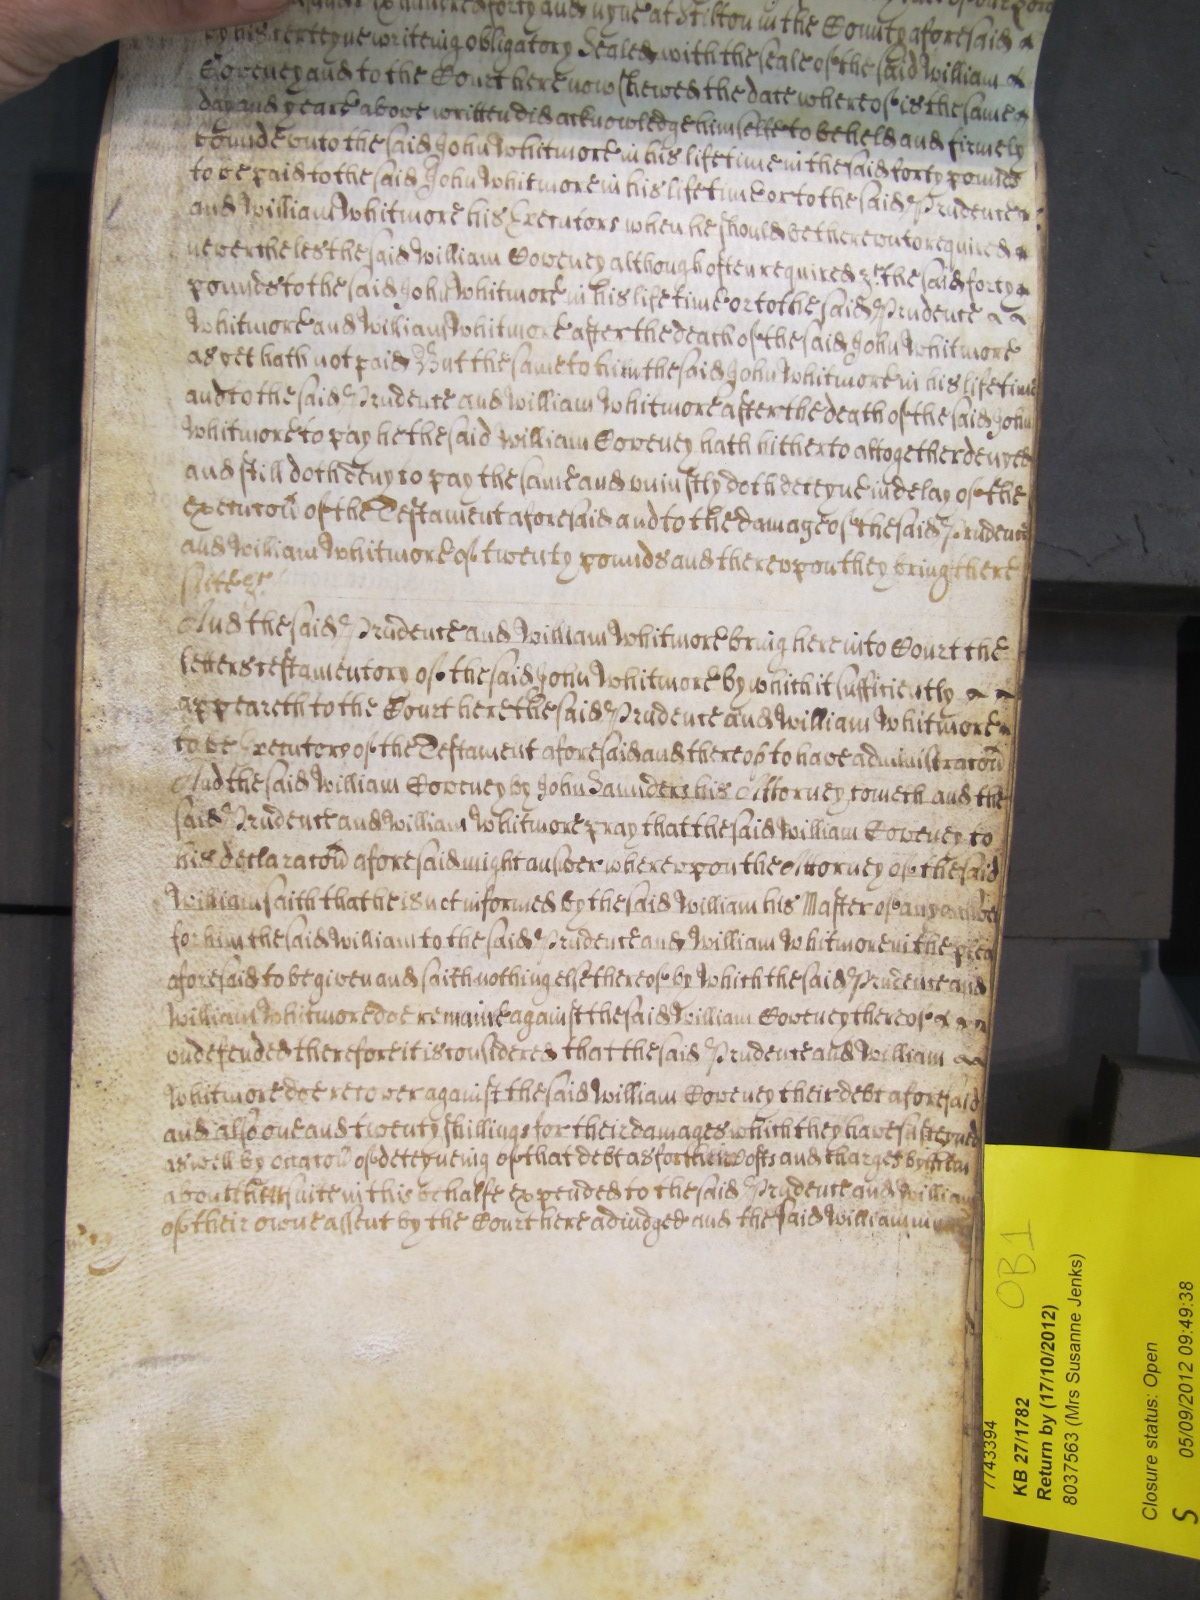 hundred forty and nyne at Stilton in the County aforesaid
by his certeyne writeing obligatory Sealed with the seale of the said William
Coveney and to the Court here now shewed the date whereof is the same
day and yeare above written did acknowledge himselfe to be held and firmely
bounde unto the said John Whitmore in his life time in the said forty pounds
to be paid to the said John Whitmore in his life time or to the said Prudence
and William Whitmore his Executors when he should be thereunto required
neverthelesthe said William Coveney although often required &c the said forty
pounds to the said John Whitmore in his life time or to the said Prudence
Whitmore and William Whitmore after the death of the said John Whitmore
as yet hath not paid But the same to him the said John Whitmore in his life time
and to the said Prudence and William Whitmore after the death of the said John
Whitmore to pay he the said William Coveney hath hitherto altogether denyed
and still doth deny to pay the same and uniustly doth deteyne in delay of the
execucoñ of the Testament aforesaid and to the damage of the said Prudence
and William Whitmore of twenty pounds and thereupon they bring there
suite &c
And the said Prudence and William Whitmore bring here into Court the
letters testamentory of the said John Whitmore by which it sufficiently
appeareth to the Court here the said Prudence and William Whitmore
to be Executors of the Testament aforesaid and thereof to have administracoñ
And the said William Coveney by John Saunders his Attorney cometh and the
said Prudence and William Whitmore pray that the said William Coveney to
his declaracoñ aforesaid might answer whereupon the Attorney of the said
William saith that he is not informed by the said William his Master of any answer
for him the said William to the said Prudence and William Whitmore in the plea
aforesaid to be given and saith nothing else thereof by which the said Prudence and
William Whitmore doe remaine against the said William Coveney thereof
undefended therefore it is considered that the said Prudence and William
Whitmore doe recover against the said William Coveney their debt aforesaid
and also one and twenty shillings for their damages which they have susteyned
aswell by occacoñ of deteyneing of that debt as for their costs and charges by them
about their suite in this behalfe expended to the said Prudence and William
of their owne assent by the Court here adiudged and the said William in
7743394
KB 27/1782
Return by (17/10/2012)
8037563 (Mrs Susanne Jenks)
OB1
Closure status: Open
05/09/2012 09:49:38
S